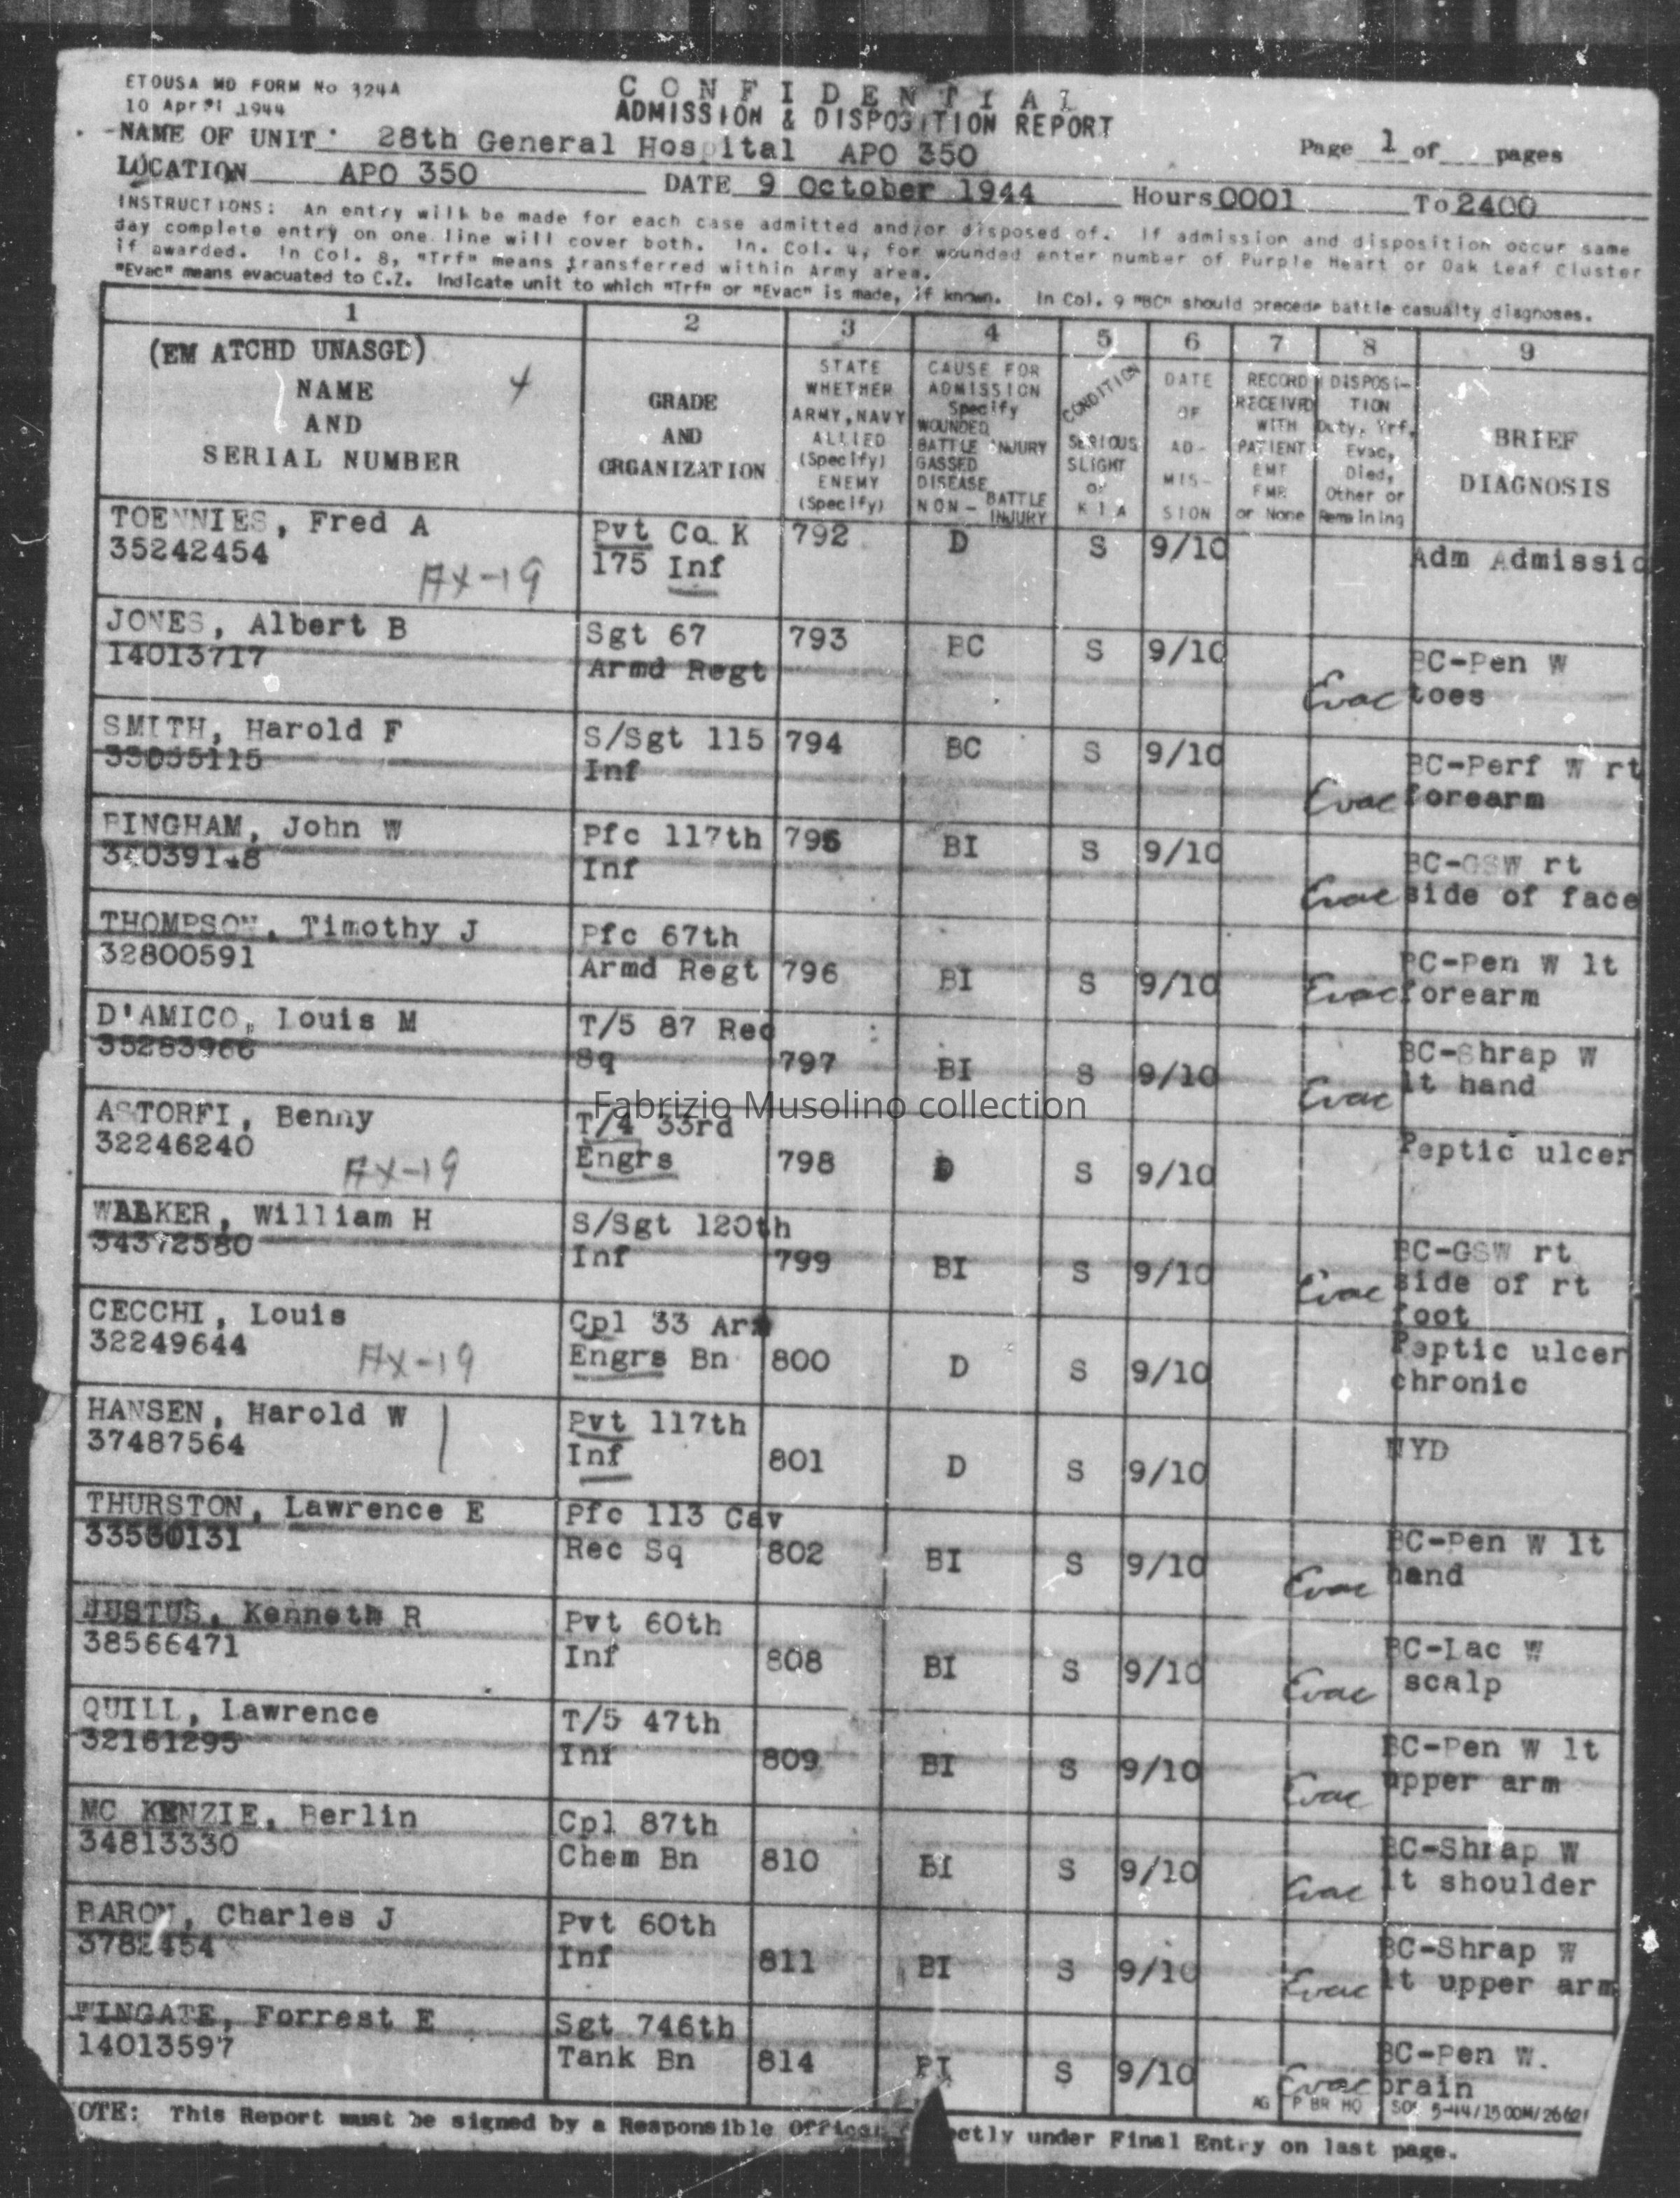 ETOUSA MD FORM No 324A
10 April 1944
CONFIDENTIAL
ADMISSION & DISPOSITION REPORT
NAME OF UNIT 28th General Hospital APO 350 Page 1 of pages
LOCATION APO 350 DATE 9 October 1944 Hours 0001 To 2400
INSTRUCTIONS: An entry will be made for each case admitted and/or disposed of. If admission and disposition occur same
day complete entry on one line will cover both. In. Col. 4, for wounded enter number of Purple Heart or Oak Leaf Cluster
if awarded. In Col. 8, "Trf" means transferred within Army area.
"Evac" means evacuated to C.Z. Indicate unit to which "Trf" or "Evac" is made, if known. In Col. 9 "BC" should precede battle casualty diagnoses.
1 2 3 4 5 6 7 8 9
(EM ATCHD UNASGD)
NAME
AND
SERIAL NUMBER
4
GRADE
AND
ORGANIZATION
STATE
WHETHER
ARMY, NAVY
ALLIED
(Specify)
ENEMY
(Specify)
CAUSE FOR
ADMISSION
Specify
WOUNDED
BATTLE INJURY
GASSED
DISEASE
NON-BATTLE
INJURY
CONDITION
SERIOUS
SLIGHT
or
K I A
DATE
OF
AD-
MIS-
SION
RECORD
RECEIVED
WITH
PATIENT
EMT
FMR
or None
DISPOSI-
TION
Duty, Trf,
Evac,
Died,
Other or
Remaining
BRIEF
DIAGNOSIS
TOENNIES, Fred A Pvt Co. K 792 D S 9/10 Adm Admissio
35242454 175 Inf
AX-19
JONES, Albert B Sgt 67 793 BC S 9/10 BC-Pen W
14013717 Armd Regt Evac toes
SMITH, Harold F S/Sgt 115 794 BC S 9/10 BC-Perf W rt
33055115 Inf Evac forearm
BINGHAM, John W Pfc 117th 795 BI S 9/10 BC-GSW rt
34039148 Inf Evac side of face
THOMPSON, Timothy J Pfc 67th BC-Pen W lt
32800591 Armd Regt 796 BI S 9/10 Evac forearm
D'AMICO, Louis M T/5 87 Rec BC-Shrap W
35283966 Sq 797 BI S 9/10 Evac lt hand
Fabrizio Musolino collection
ASTORFI, Benny T/4 33rd Peptic ulcer
32246240 Engrs 798 D S 9/10
AX-19
WALKER, William H S/Sgt 120th BC-GSW rt
34372580 Inf 799 BI S 9/10 Evac side of rt
foot
CECCHI, Louis Cpl 33 Arm Peptic ulcer
32249644 Engrs Bn 800 D S 9/10 chronic
AX-19
HANSEN, Harold W Pvt 117th NYD
37487564 Inf 801 D S 9/10
THURSTON, Lawrence E Pfc 113 Cav BC-Pen W lt
33560131 Rec Sq 802 BI S 9/10 Evac hand
JUSTUS, Kenneth R Pvt 60th BC-Lac W
38566471 Inf 808 BI S 9/10 Evac scalp
QUILL, Lawrence T/5 47th BC-Pen W lt
32161295 Inf 809 BI S 9/10 Evac upper arm
MC KENZIE, Berlin Cpl 87th BC-Shrap W
34813330 Chem Bn 810 BI S 9/10 Evac lt shoulder
BARON, Charles J Pvt 60th BC-Shrap W
Inf 811 BI S 9/10 Evac lt upper arm
WINGATE, Forrest E Sgt 746th BC-Pen W.
14013597 Tank Bn 814 BI S 9/10 Evac brain
AG P BR HQ SOS 5-44/1500M/26621
NOTE: This Report must be signed by a Responsible Officer directly under Final Entry on last page.